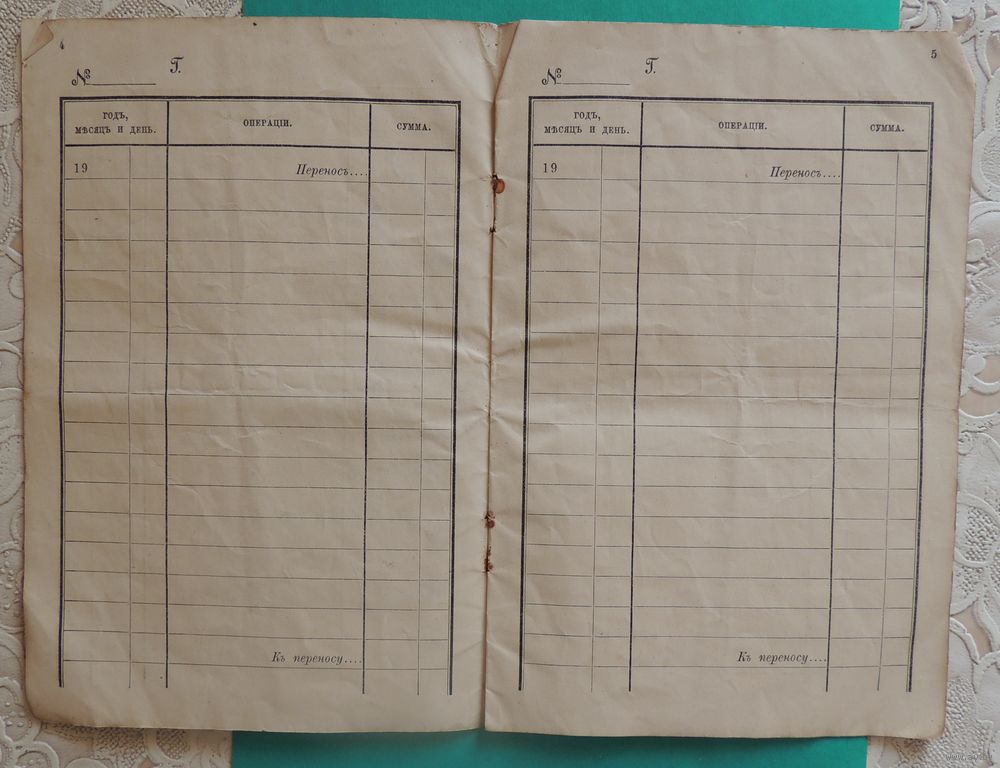 4
№ Г.
ГОДЪ,
МѢСЯЦЪ И ДЕНЬ.
ОПЕРАЦІИ.
СУММА.
19
Переносъ....
Къ переносу....
5
№ Г.
ГОДЪ,
МѢСЯЦЪ И ДЕНЬ.
ОПЕРАЦІИ.
СУММА.
19
Переносъ....
Къ переносу....